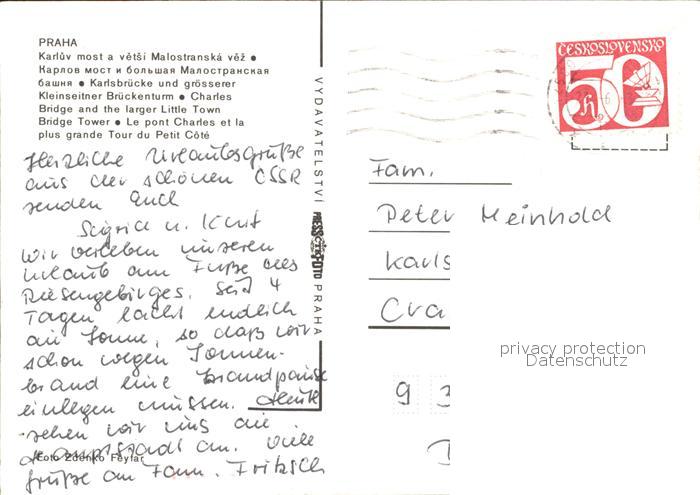 PRAHA
Karlův most a větší Malostranská věž •
Карлов мост и большая Малостранская
башня • Karlsbrücke und grösserer
Kleinseitner Brückenturm • Charles
Bridge and the larger Little Town
Bridge Tower • Le pont Charles et la
plus grande Tour du Petit Côté
Herzliche Urlaubsgrüße
aus der schönen ČSSR
senden Euch
Sigrid u. Kurt
Wir verleben unseren
Urlaub am Fuße des
Riesengebirges. Seit 4
Tagen lacht endlich
die Sonne, so daß wir
schon wegen Sonnen-
brand eine Brandpause
einlegen müssen. Heute
sehen wir uns die
Hauptstadt an. Viele
Foto Zdenko Feyfar
Grüße an Fam. Fritzsch
VYDAVATELSTVÍ PRESSFOTO PRAHA
ČESKOSLOVENSKO
50
h
Fam.
Peter Meinhold
Karls
Cra
9 3
privacy protection
Datenschutz